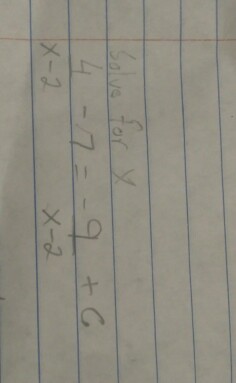 Solve for x
4 - 7 = - 9 + 6
x-2 x-2